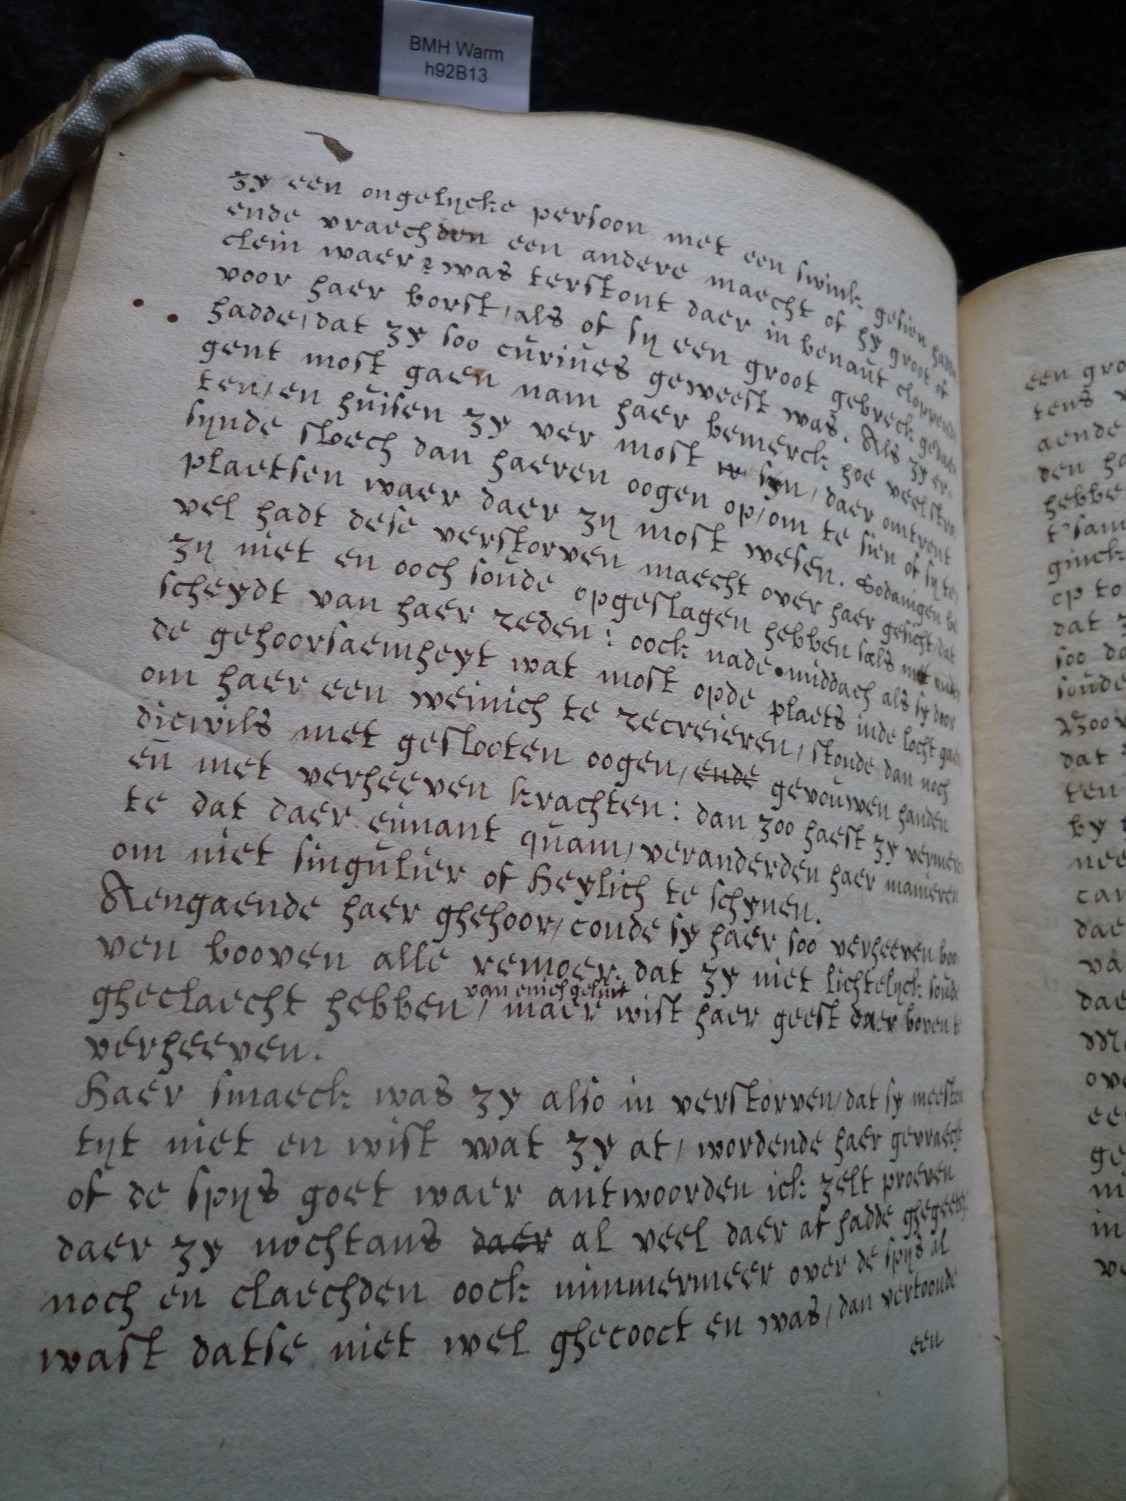 BMH Warm
h92B13
zy een ongelycke persoon met een swinck gesien hadde
ende vraechden een andere maecht of hy groot of
clein waer? was terstont daer in benaut cloppende
voor haer borst, als of sy een groot gebreck gedaen
hadde, dat zy soo curiues geweest was. Als zy er-
gent most gaen nam haer bemerck hoe veel stra
ten, en huisen zy ver most syn, daer omtrent
synde sloech dan haeren oogen op, om te sien of sy ter
plaetsen waer daer zy most wesen. Sodanigen be
vel hadt dese verstorven maecht over haer gesicht, dat
zy niet en ooch soude opgeslagen hebben sals met onder
scheydt van haer reden: oock nade middach als sy door
de gehoorsaemheyt wat most opde plaets inde locht gaen
om haer een weinich te recreieren, stonde dan noch
dicwils met geslooten oogen, ende gevouwen handen
en met verheeven krachten: dan zoo haest zy vermerc
te dat daer eimant quam, veranderden haer manieren
om niet singulier of Heylich te schynen.
Aengaende haer ghehoor, conde sy haer soo verheeven boo
ven booven alle remoer dat zy niet lichtelyck soude
van enich geluit
gheclaecht hebben, maer wist haer geest daer boven te
verheeven.
Haer smaeck was zy also in verstorven, dat sy meesten
tyt niet en wist wat zy at, wordende haer gevraecht
of de spys goet waer antwoorden ick zelt proeven
daer zy nochtans daer al veel daer af hadde ghegeeten
noch en claechden oock nimmermeer over de spys al
wast datse niet wel ghecooct en was, dan vertoonde
een
een gro
tens
aende
den ha
hebbe
t'sam
ginck
op to
dat z
soo da
soude
Voor
dat
ten
by
nee
can
dae
va
dae
Ma
ove
ee
ge
m
in
ve